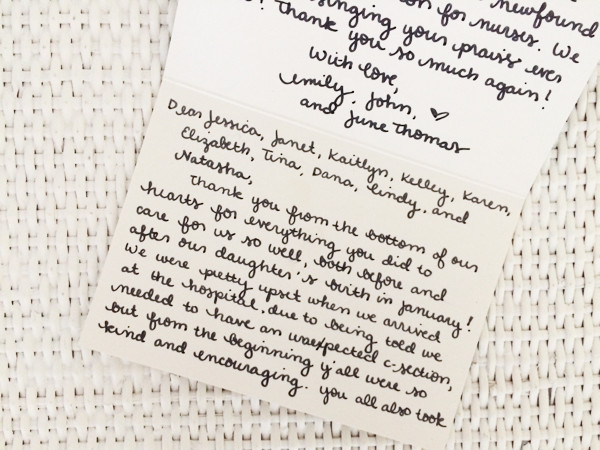 newfound
for nurses. We
singing your praises ever
! Thank you so much again!
With love,
Emily, John, ♡
and June Thomas
Dear Jessica, Janet, Kaitlyn, Kelley, Karen,
Elizabeth, Tina, Dana, Cindy, and
Natasha,
Thank you from the bottom of our
hearts for everything you did to
care for us so well, both before and
after our daughter's birth in January!
We were pretty upset when we arrived
at the hospital, due to being told we
needed to have an unexpected c-section,
but from the beginning y'all were so
kind and encouraging. You all also took